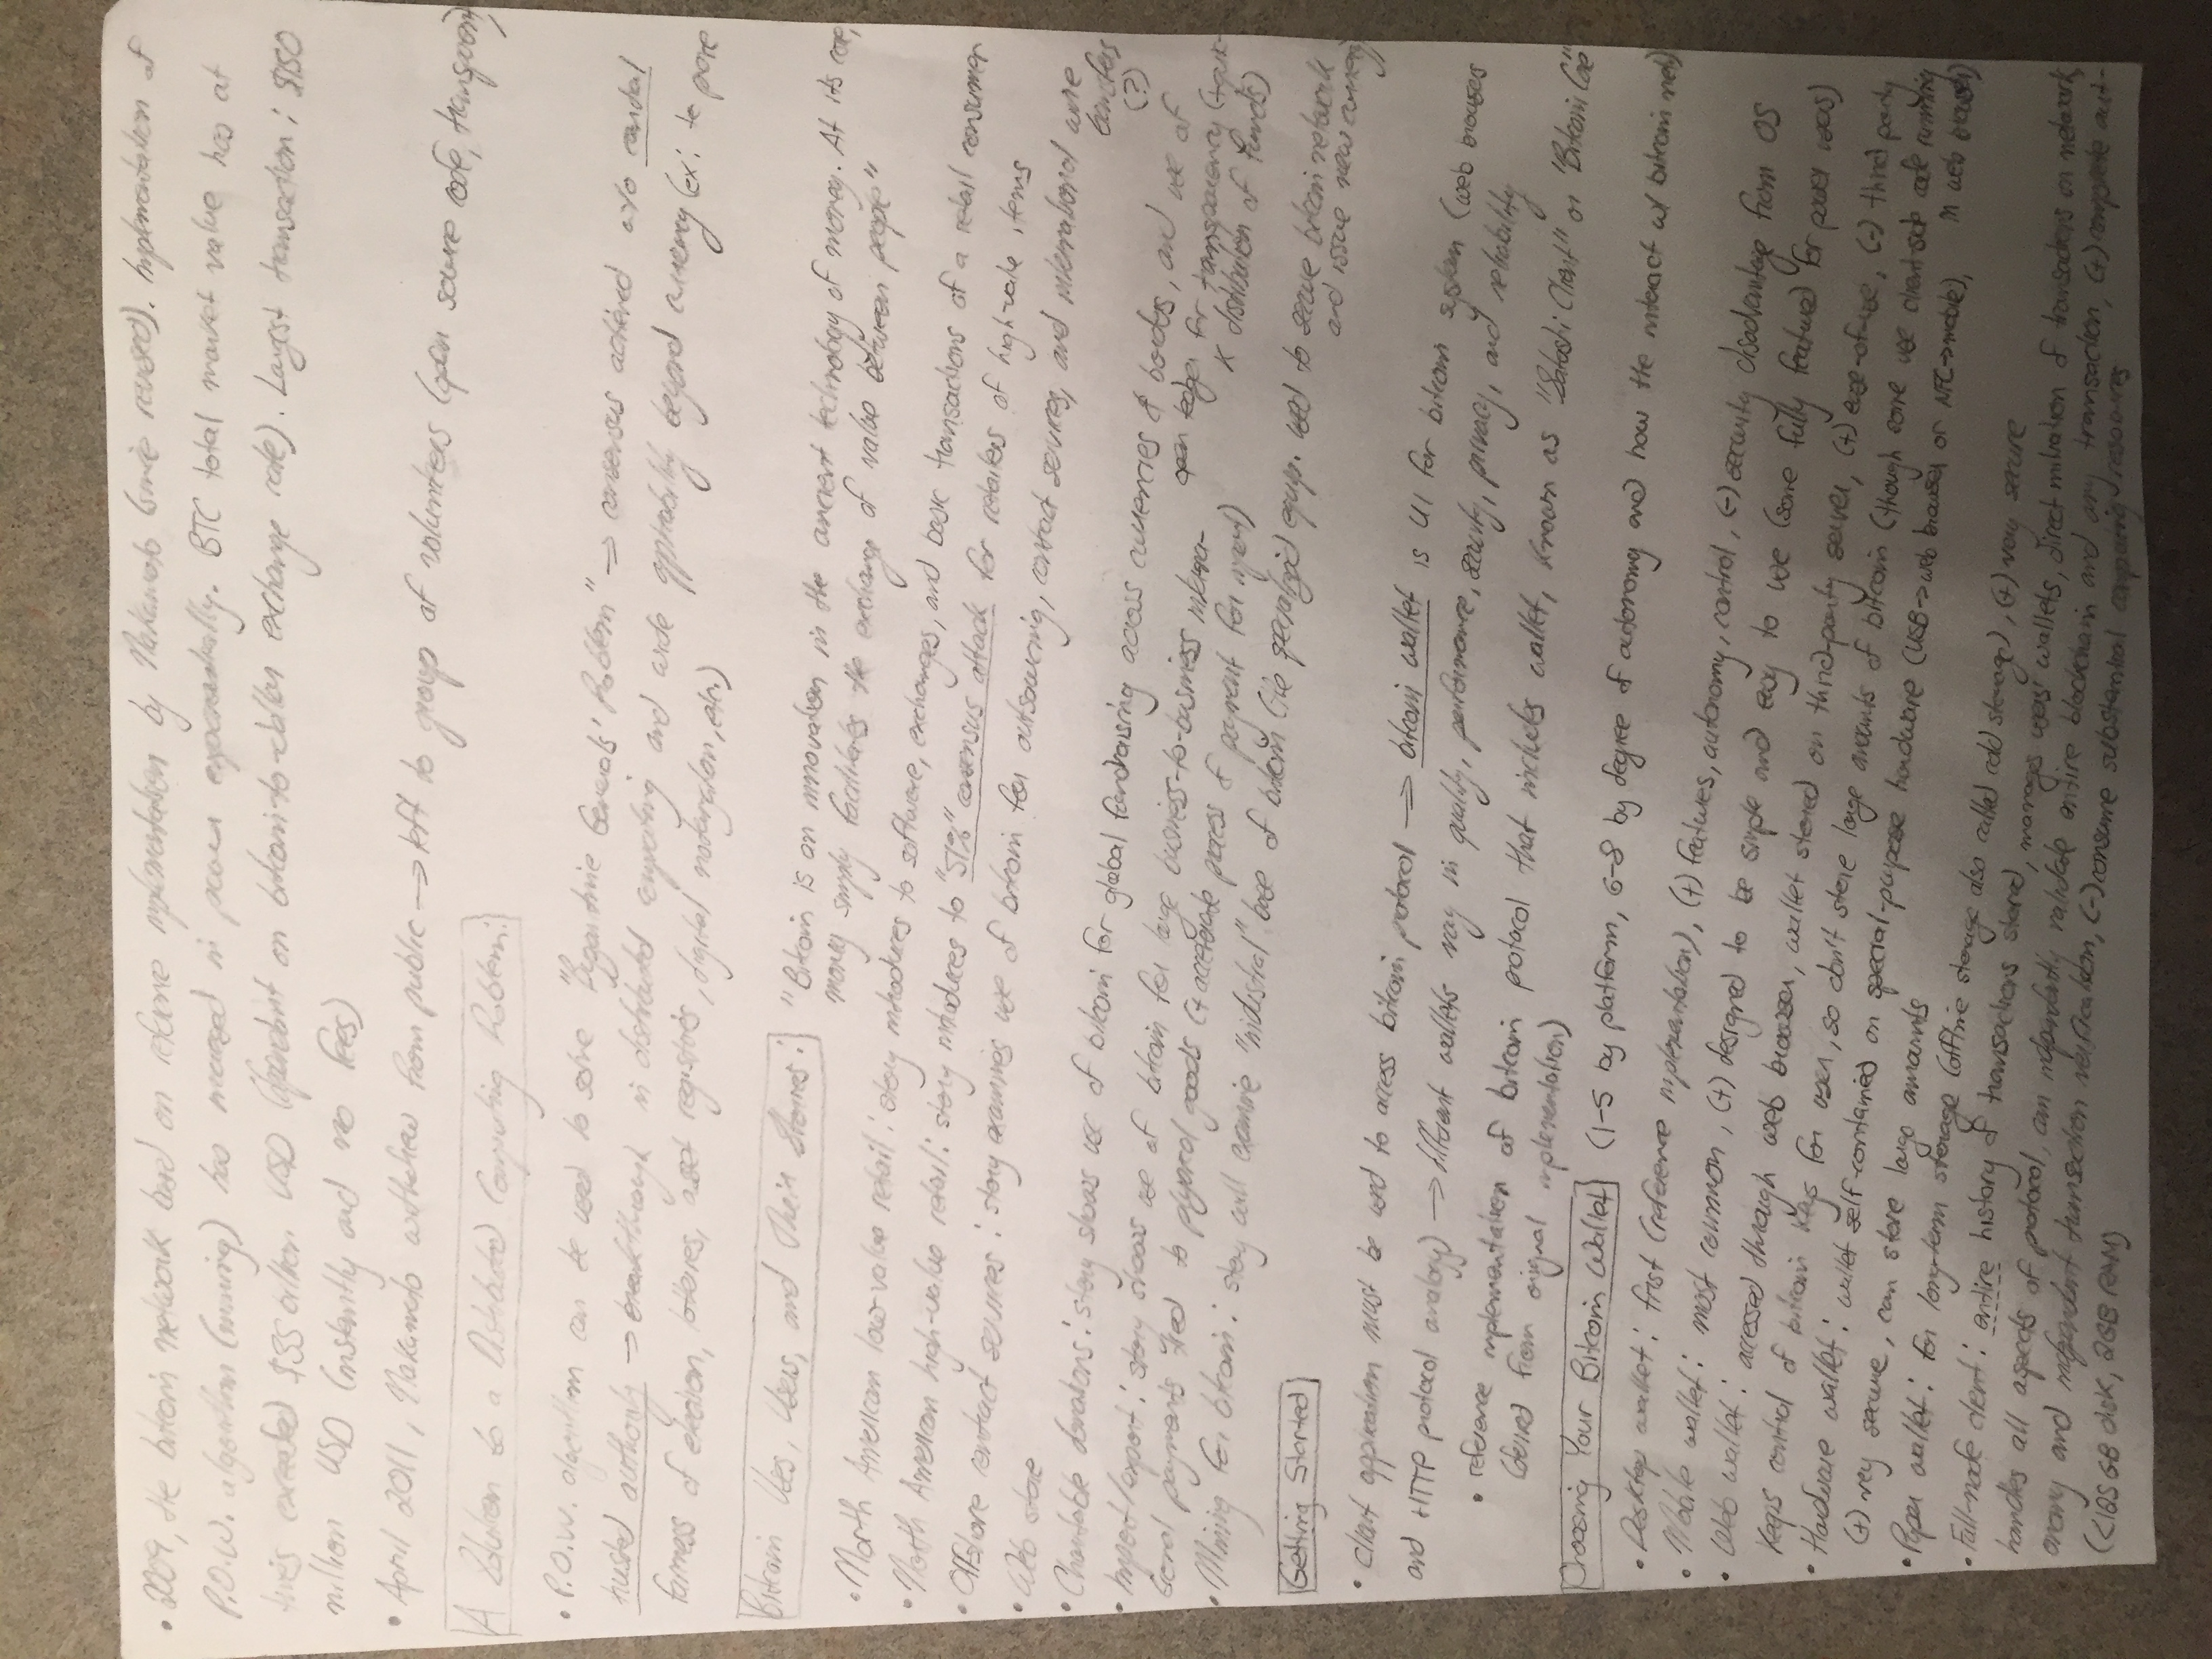 • 2009, the bitcoin network based on reference implementation by Nakamoto (since revised). Implementation of
P.O.W. algorithm (mining) has increased in power exponentially. BTC total market value has at
times exceeded $35 billion USD (dependent on bitcoin-to-dollar exchange rate). Largest transaction: $150
million USD (instantly and no fees)
• April 2011, Nakamoto withdrew from public → left to group of volunteers (open source code, transparent)
A Solution to a Distributed Computing Problem:
• P.O.W. algorithm can be used to solve "Byzantine Generals' Problem" → consensus achieved w/o central
trusted authority → breakthrough in distributed computing and wide applicability beyond currency (ex: to prove
fairness of election, lotteries, asset registries, digital notarization, etc.)
Bitcoin Uses, Users, and Their Stories:
"Bitcoin is an innovation in the ancient technology of money. At its core,
money simply facilitates the exchange of value between people"
• North American low-value retail: story introduces to software, exchanges, and basic transactions of a retail consumer
• North American high-value retail: story introduces to "51%" consensus attack for retailers of high-value items
• Offshore contract services: story examines use of bitcoin for outsourcing, contract services, and international wire
transfers
• Web store (?)
• Charitable donations: story shows use of bitcoin for global fundraising across currencies & borders, and use of
open ledger for transparency
• Import/export: story shows use of bitcoin for large business-to-business
payments tied to physical goods (+ accelerate process of payment for import)
* distribution of funds)
• Mining for bitcoin: story will examine "industrial" use of bitcoin (the specialized equip. used to secure bitcoin network
and issue new currency)
Getting Started
• Client application must be used to access bitcoin protocol → bitcoin wallet is UI for bitcoin system (web browser
and HTTP protocol analogy) → different wallets vary in quality, performance, security, privacy, and reliability
• reference implementation of bitcoin protocol that includes wallet, known as "Satoshi Client" or "Bitcoin Core"
(derived from original implementation)
Choosing Your Bitcoin Wallet (1-5 by platform, 6-8 by degree of autonomy and how the interact w/ bitcoin net.)
• Desktop wallet: first (reference implementation), (+) features, autonomy, control, (-) security disadvantage from OS
• Mobile wallet: most common, (+) designed to be simple and easy to use (some fully featured for power users)
• Web wallet: accessed through web browser, wallet stored on third-party server, (+) ease-of-use, (-) third party
keeps control of bitcoin keys for user, so don't store large amounts of bitcoin (though some use client-side code running
in web browser)
• Hardware wallet: wallet self-contained on special-purpose hardware (USB→web browser or NFC→mobile),
(+) very secure, can store large amounts
• Paper wallet: for long-term storage (offline storage also called cold storage), (+) very secure
• Full-node client: entire history of transactions stored, manages users' wallets, direct initiation of transactions on network,
handles all aspects of protocol, can independently validate entire blockchain and any transaction, (+) complete aut-
onomy and independent transaction verification, (-) consume substantial computing resources
(<125 GB disk, 2GB RAM)